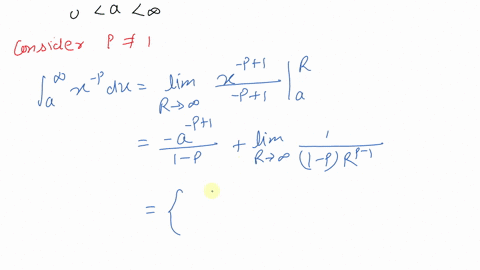 0 < a < ∞
Consider P ≠ 1
∫_a^∞ x^{-P} dx = lim_{R→∞} x^{-P+1}/(-P+1) |_a^R
= -a^{-P+1}/(1-P) + lim_{R→∞} 1/((1-P)R^{P-1})
= {